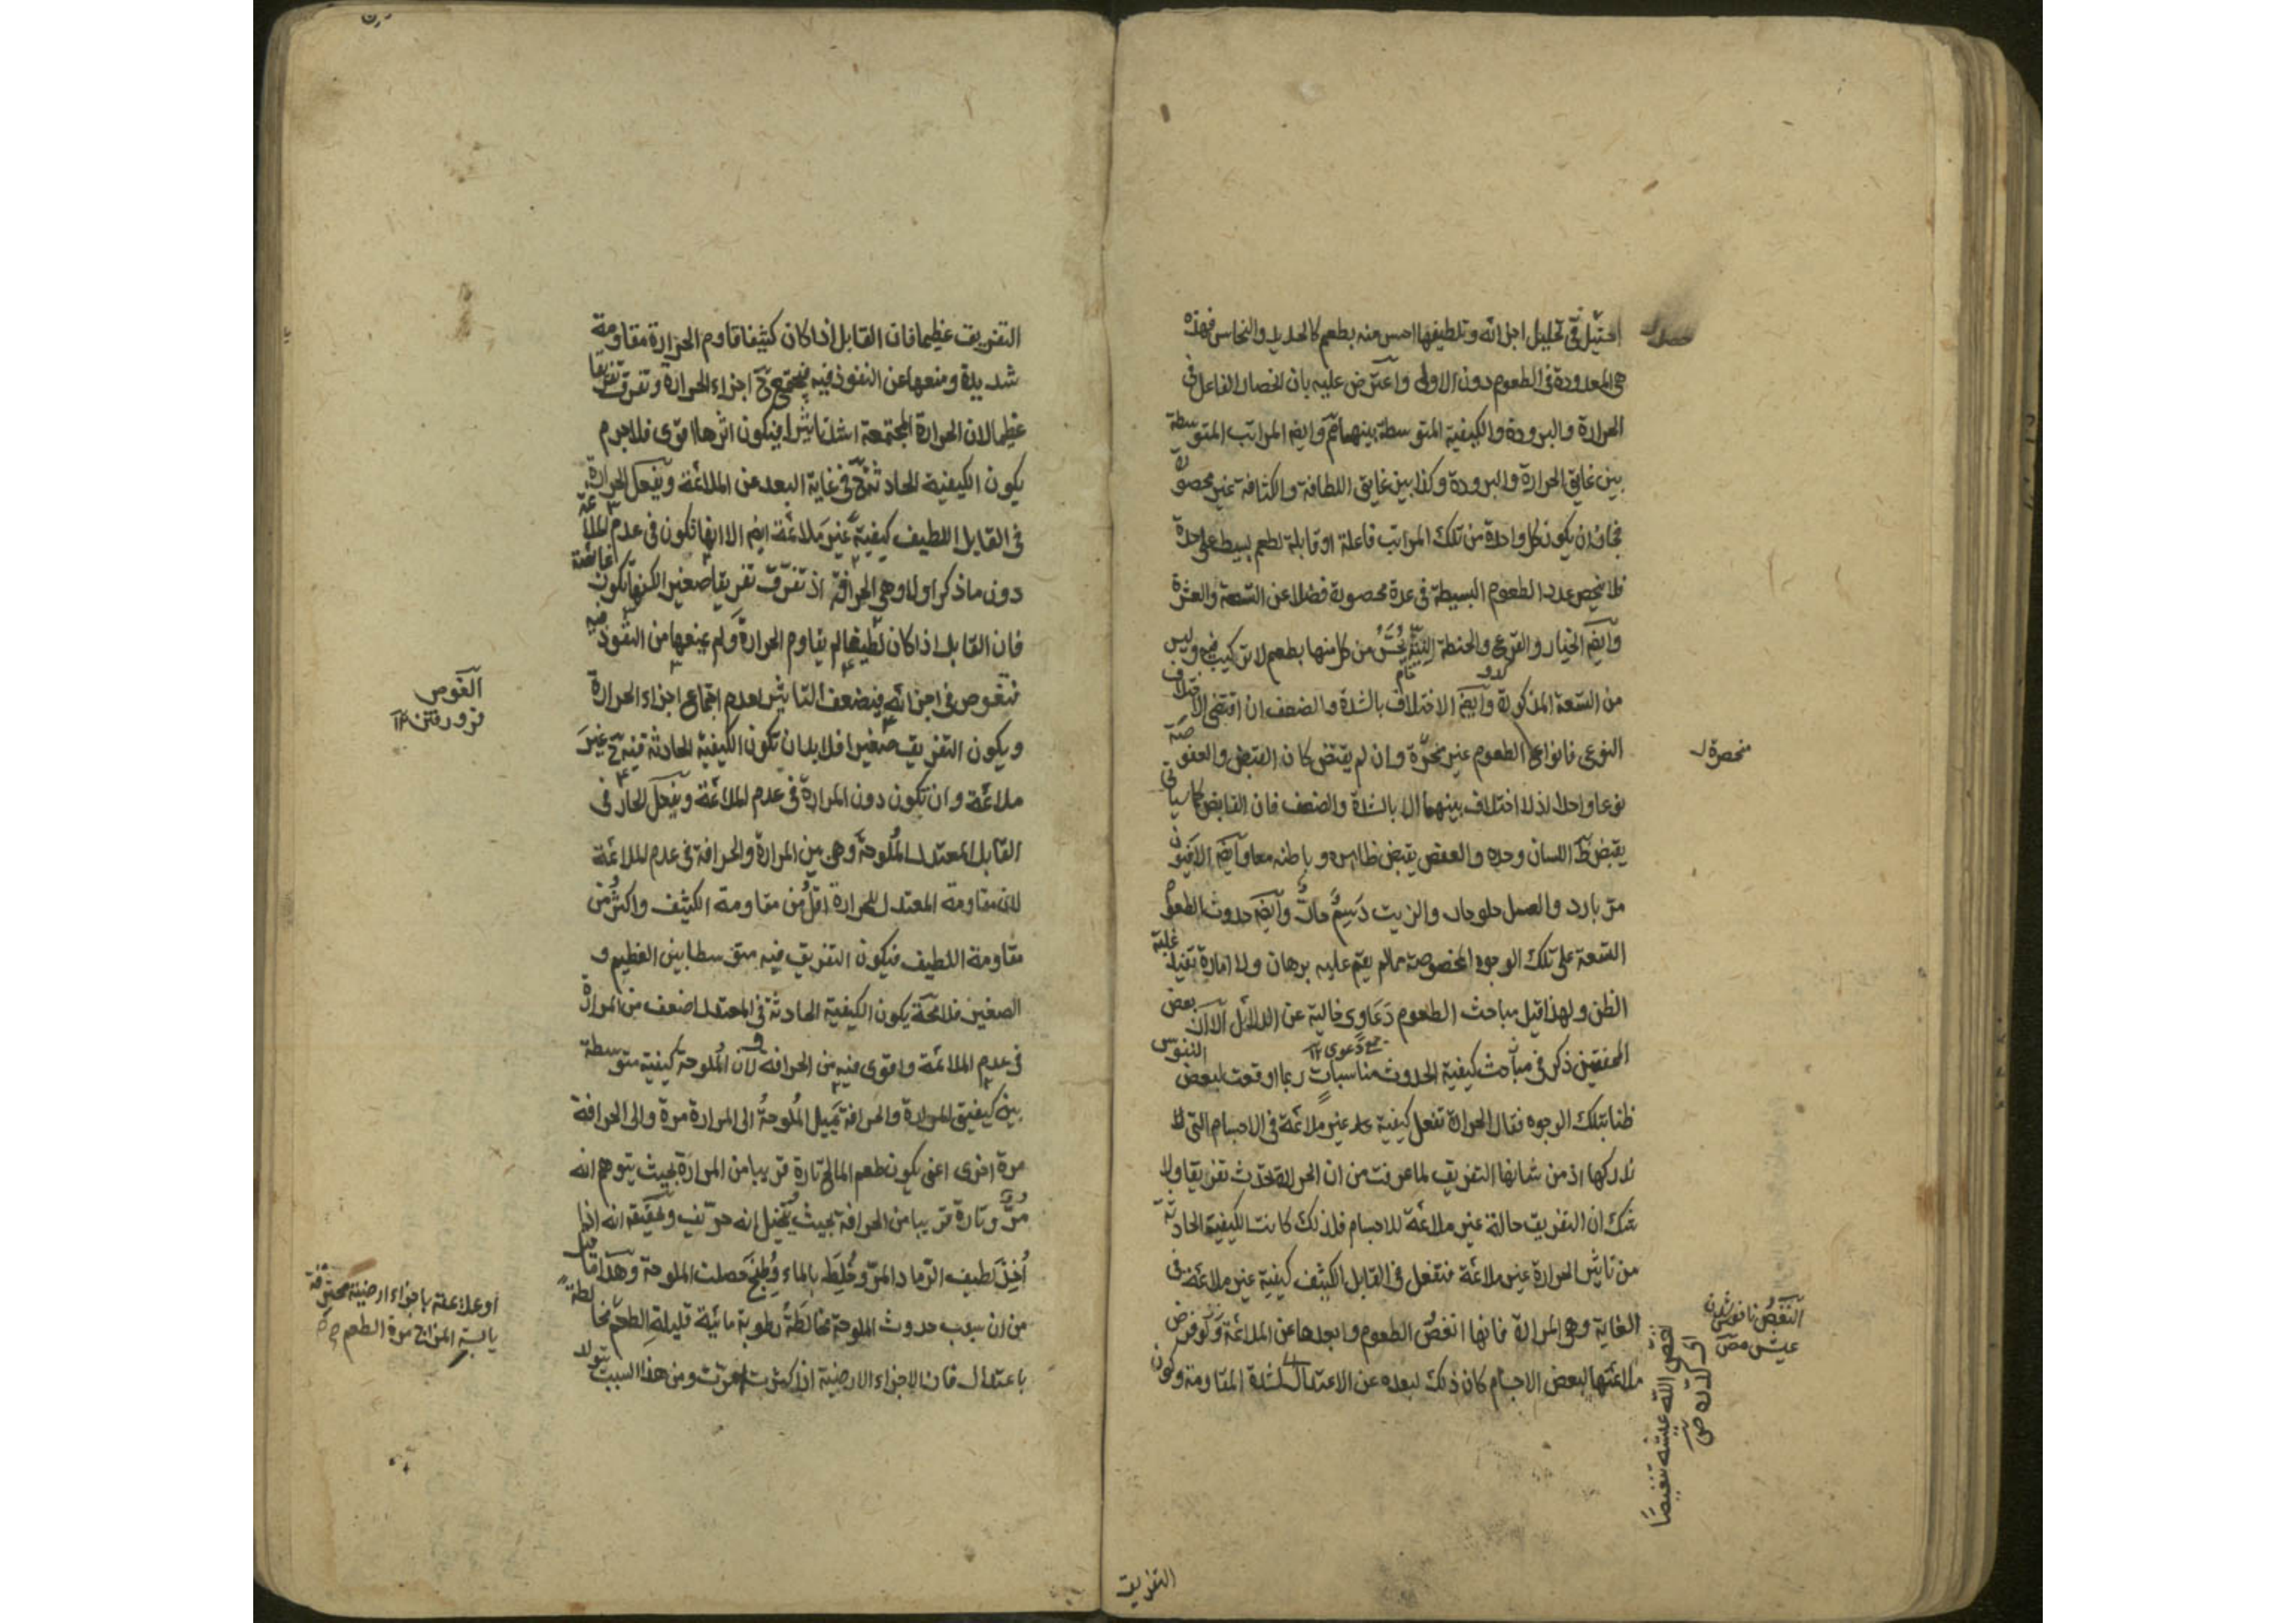 احتيل في تحليل اجزائه وتلطيفها احس منه بطعم كالحديد والنحاس فهذه
هي المعدودة في الطعوم دون الاولى واعترض عليه بان انحصار الفاعل في
الحرارة والبرودة والكيفية المتوسطة بينهما مم وايضا المراتب المتوسطة
بين غايتي الحرارة والبرودة وكذا بين غايتي اللطافة والكثافة غير محصورة
فجاز ان يكون كل واحدة من تلك المراتب فاعلة او قابلة لطعم بسيط على حدة
فلا ينحصر عدد الطعوم البسيطة في عدة محصورة فضلا عن التسعة والعشرة
وايضا الخيار والقرع والحنطة النية يحس من كل منها بطعم لا تركيب فيه وليس
من التسعة المذكورة وايضا الاختلاف بالشدة والضعف ان اقتضى الاختلاف
النوعي فانواع الطعوم غير منحصرة وان لم يقتض كان القبض والعفوصة
نوعا واحدا اذ لا اختلاف بينهما الا بالشدة والضعف فان القابض كما سياتي
يقبض ظ اللسان وحده والعفص يقبض ظاهره وباطنه معا وايضا الافيون
مر بارد والعسل حلو حار والزيت دسم حار وايضا حدوث الطعوم
التسعة على تلك الوجوه المخصوصة مما لم يقم عليه برهان ولا امارة تفيد غلبة
الظن ولهذا قيل مباحث الطعوم دعاوى خالية عن الدلائل الا ان بعض
جمع دعوى ١٢
المحققين ذكر في مباحث كيفية الحدوث مناسبات ربما اوقعت لبعض النفوس
ظنا بتلك الوجوه فقال الحرارة تفعل كيفية غير ملائمة في الاجسام التي لا
ندركها اذ من شانها التفريق لما عرفت من ان الحرارة تحدث تفريقا ولا
شك ان التفريق حالة غير ملائمة للاجسام فلذلك كانت الكيفية الحادثة
من تاثير الحرارة غير ملائمة فتفعل في القابل الكثيف كيفية غير ملائمة في
الغاية وهو المرارة فانها انغص الطعوم وابعدها عن الملائمة ولو فرض
ملائمتها لبعض الاجسام كان ذلك لبعده عن الاعتدال لشدة المقاومة وكون
منحصرة
نغص الله عيشه تنغيصا
اى كدره
التفريق
التفريق عظيما فان القابل اذا كان كثيفا قاوم الحرارة مقاومة
شديدة ومنعها عن النفوذ فيه فيجتمع ح اجزاء الحرارة وتفرق تفريقا
عظيما لان الحرارة المجتمعة اشد تاثيرا فيكون اثرها اقوى فلاجرم
يكون الكيفية الحادثة ح في غاية البعد عن الملائمة ويفعل الحرارة
في القابل اللطيف كيفية غير ملائمة ايضا الا انها تكون في عدم الملائمة
دون ما ذكر اولا وهي الحرافة اذ تفرق تفريقا صغيرا لكنها تكون غائصة
فان القابل اذا كان لطيفا لم يقاوم الحرارة ولم يمنعها من النفوذ فيه
فتغوص في اجزائه فيضعف التاثير لعدم اجتماع اجزاء الحرارة
ويكون التفريق صغيرا فلا بد ان تكون الكيفية الحادثة فيه ح غير
ملائمة وان تكون دون المرارة في عدم الملائمة ويفعل الحار في
القابل المعتدل الملوحة وهي بين المرارة والحرافة في عدم الملائمة
لان مقاومة المعتدل للحرارة اقل من مقاومة الكثيف واكثر من
مقاومة اللطيف فيكون التفريق فيه متوسطا بين العظيم و
الصغير فلامحة يكون الكيفية الحادثة في المعتدل اضعف من المرارة
في عدم الملائمة واقوى فيه من الحرافة ولان الملوحة كيفية متوسطة
بين كيفيتي المرارة والحرافة يميل الملوحة الى المرارة مرة والى الحرافة
مرة اخرى اعني يكون طعم المالح تارة قريبا من المرارة بحيث يتوهم انه
مر وتارة قريبا من الحرافة بحيث يتخيل انه حريف وتحقيقه انه اذا
اخذ لطيف الرماد المر وخلط بالماء وطبخ حصلت الملوحة وهذا ما قيل
من ان سبب حدوث الملوحة مخالطة رطوبة مائية قليلة الطعم مخالطة
باعتدال فان الاجزاء الارضية اذا كثرت امرت ومن هذا السبب يتولد
الغوص
فرو رفتن ١٢
باجزاء ارضية محترقة
يابسة المزاج مرة الطعم